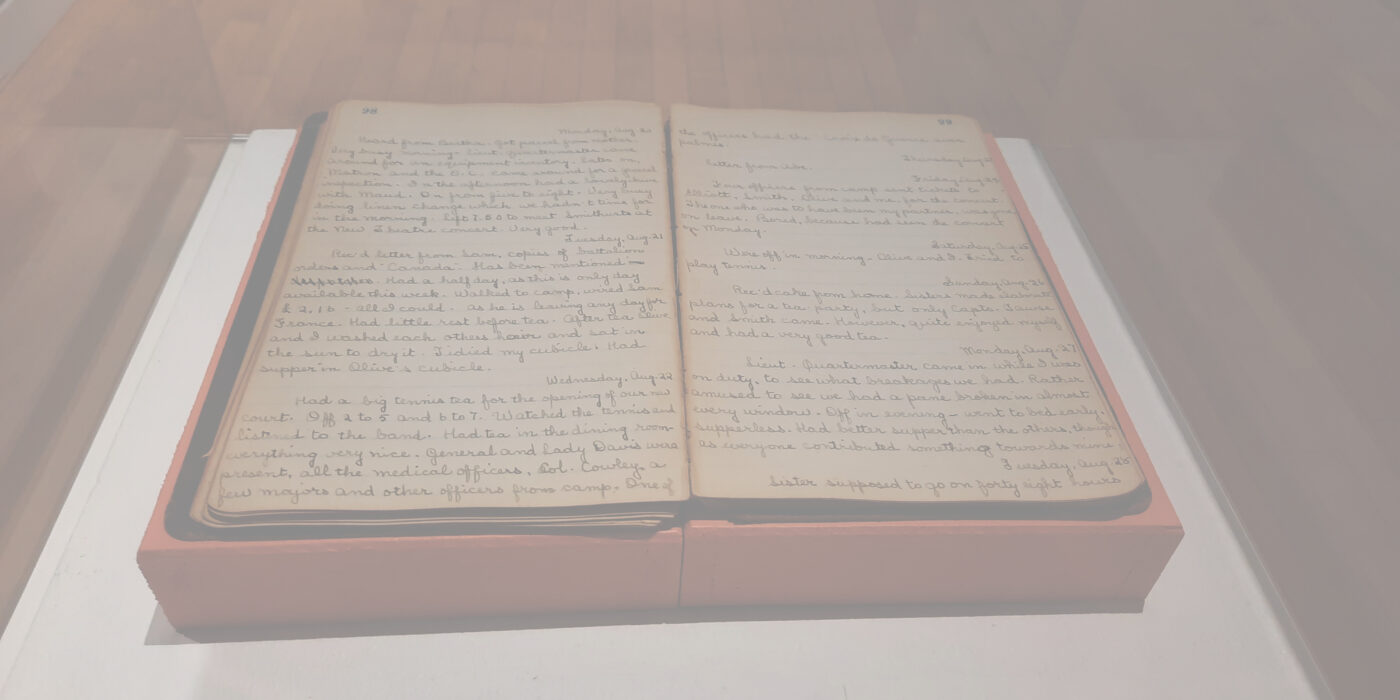 98
Monday, Aug. 20
Heard from Bertha. Got parcel from mother.
Very busy morning. Lieut. Quartermaster came
around for an equipment inventory. Later on,
Matron and the O.C. came around for a general
inspection. In the afternoon had a lovely time
with Maud. On from five to eight. Very busy
doing linen change which we hadn't time for
in the morning. Left 7.50 to meet Smithursts at
the New Theatre concert. Very good.
Tuesday, Aug. 21
Rec'd letter from Sam, copies of battalion
orders and "Canada". Has been mentioned in
despatches. Had a half day, as this is only day
available this week. Walked to camp, wired Sam
£2,10 - all I could. as he is leaving any day for
France. Had little rest before tea. After tea Olive
and I washed each others hair and sat in
the sun to dry it. Tidied my cubicle. Had
supper in Olive's cubicle.
Wednesday, Aug. 22
Had a big tennis tea for the opening of our new
court. Off 2 to 5 and 6 to 7. Watched the tennis and
listened to the band. Had tea in the dining room -
everything very nice. General and Lady Davis were
present, all the medical officers, Col. Cowley, a
few majors and other officers from camp. One of
99
the officers had the Croix de Guerre with
palms.
Thursday, Aug. 23
Letter from Abe.
Friday, Aug. 24
Four officers from camp sent tickets to
Elliott, Smith, Olive and me, for the concert.
The one who was to have been my partner, was gone
on leave. Bored, because had seen the concert
on Monday.
Saturday, Aug. 25
Were off in morning. Olive and I tried to
play tennis.
Sunday, Aug. 26
Rec'd cake from home. Sisters made elaborate
plans for a tea party, but only Capts.
and Smith came. However, quite enjoyed myself
and had a very good tea.
Monday, Aug. 27
Lieut. Quartermaster came in while I was
on duty, to see what breakages we had. Rather
amused to see we had a pane broken in almost
every window. Off in evening - went to bed early,
supperless. Had better supper than the others, though
as everyone contributed something towards mine.
Tuesday, Aug. 28
Sister supposed to go on forty eight hours